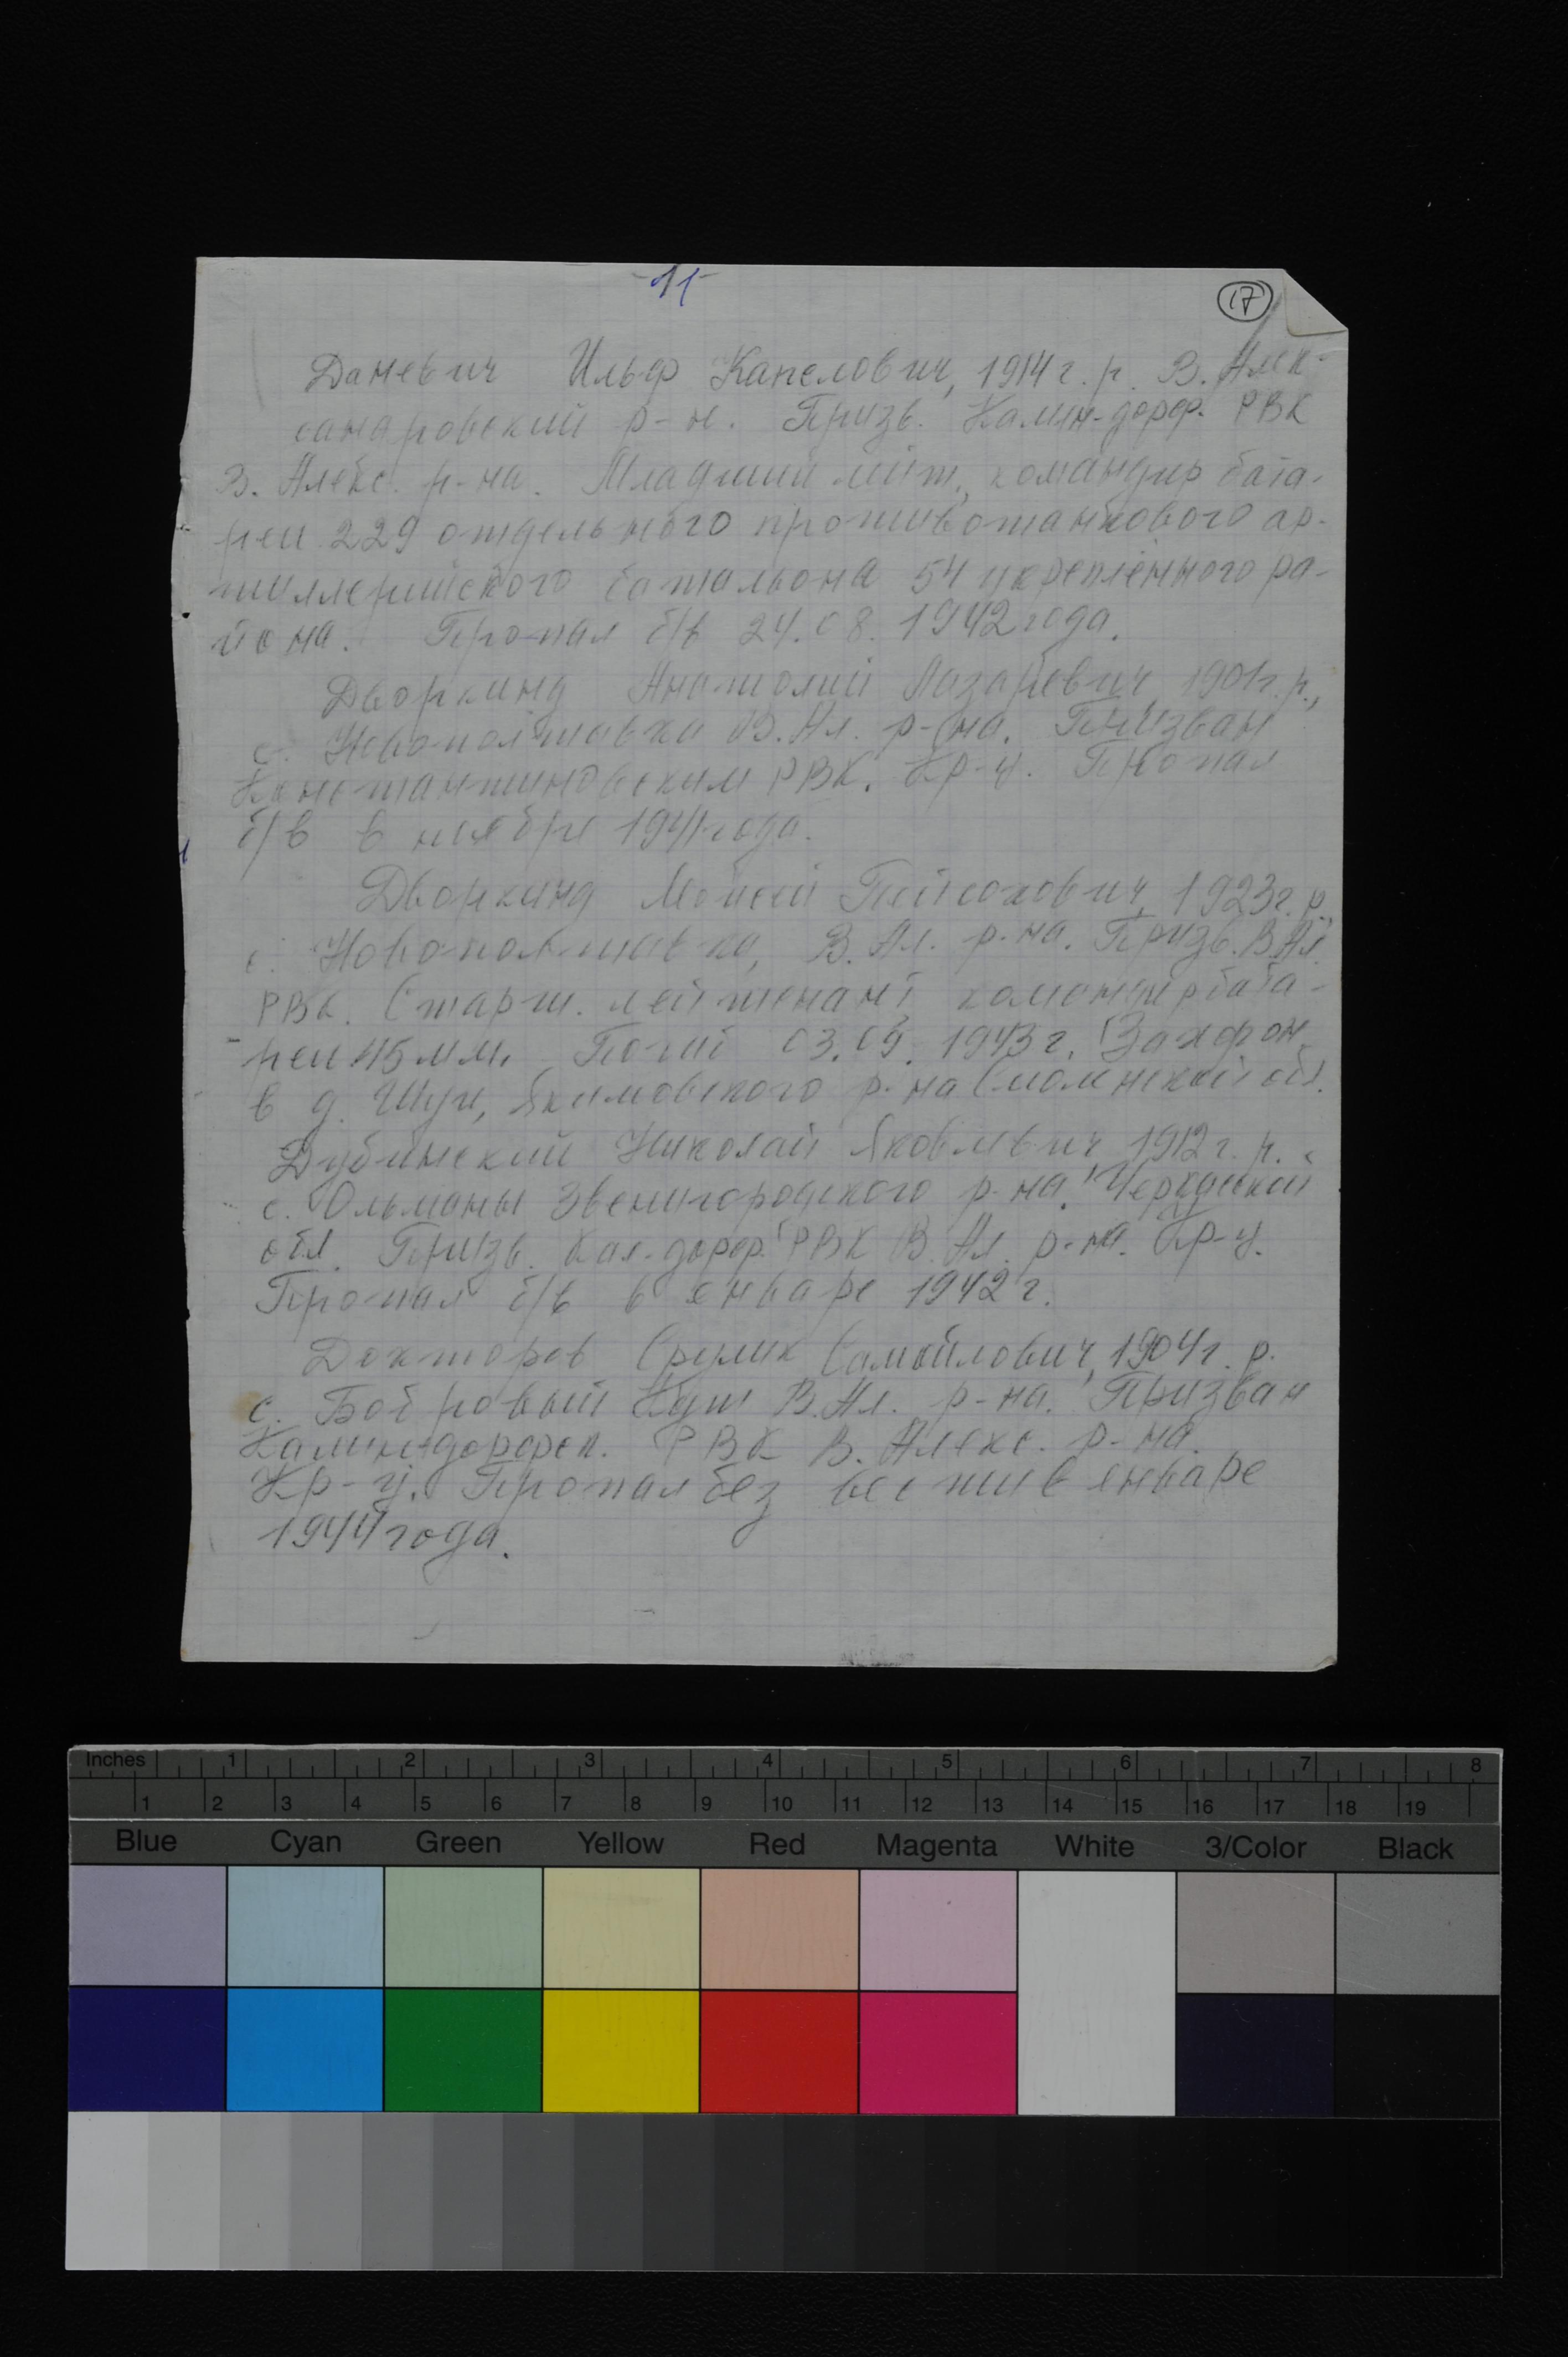 -11-
17
Даневич Ильф Капелович, 1914 г. р. В. Алек-
сандровский р-н. Призв. Калин-дорф. РВК
В. Алекс. р-на. Младший лейт., командир бата-
реи 229 отдельного противотанкового ар-
тиллерийского батальона 54 укреплённого ра-
йона. Пропал б/в 24.08.1942 года.
Дворкинд Анатолий Лазаревич 1901 г. р.,
с. Новополтавка В. Ал. р-на. Призван
Константиновским РВК. Кр-ц. Пропал
б/в в ноябре 1941 года.
Дворкинд Моисей Пейсахович, 1923 г. р.,
с. Новополтавка, В. Ал. р-на. Призв. В. Ал.
РВК. Старш. лейтенант, командир бата-
реи 45 мм. Погиб 03.09.1943 г. Захорон.
в д. Екимовского р-на Смоленской обл.
Дубинский Николай Яковлевич 1912 г. р.
с. Ольманы Звенигородского р-на Черкасской
обл. Призв. Кал-дорф. РВК В. Ал. р-на. Кр-ц.
Пропал б/в в январе 1942 г.
Докторов Срулик Самойлович, 1904 г. р.
с. Бобровый Кут В. Ал. р-на. Призван
Калиндорфск. РВК В. Алекс. р-на.
Кр-ц. Пропал без вести в январе
1944 года.
Inches 1 2 3 4 5 6 7 8
1 2 3 4 5 6 7 8 9 10 11 12 13 14 15 16 17 18 19
Blue Cyan Green Yellow Red Magenta White 3/Color Black